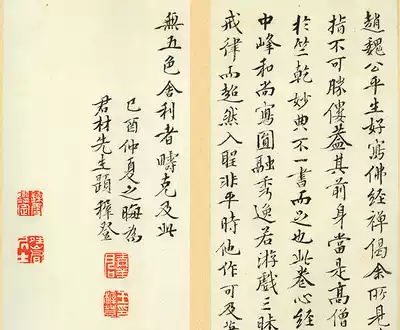 趙魏公平生好寫佛經禅偈余所見
指不可勝僂葢其前身當是髙僧
於竺乾妙典不一書而之也此卷心經
中峰和尚寫圓融秀逸若游戲三昧
戒律而超然入聖非平時他作可及
無五色舍利者疇克及此
己酉仲夏之晦為
君材先生題